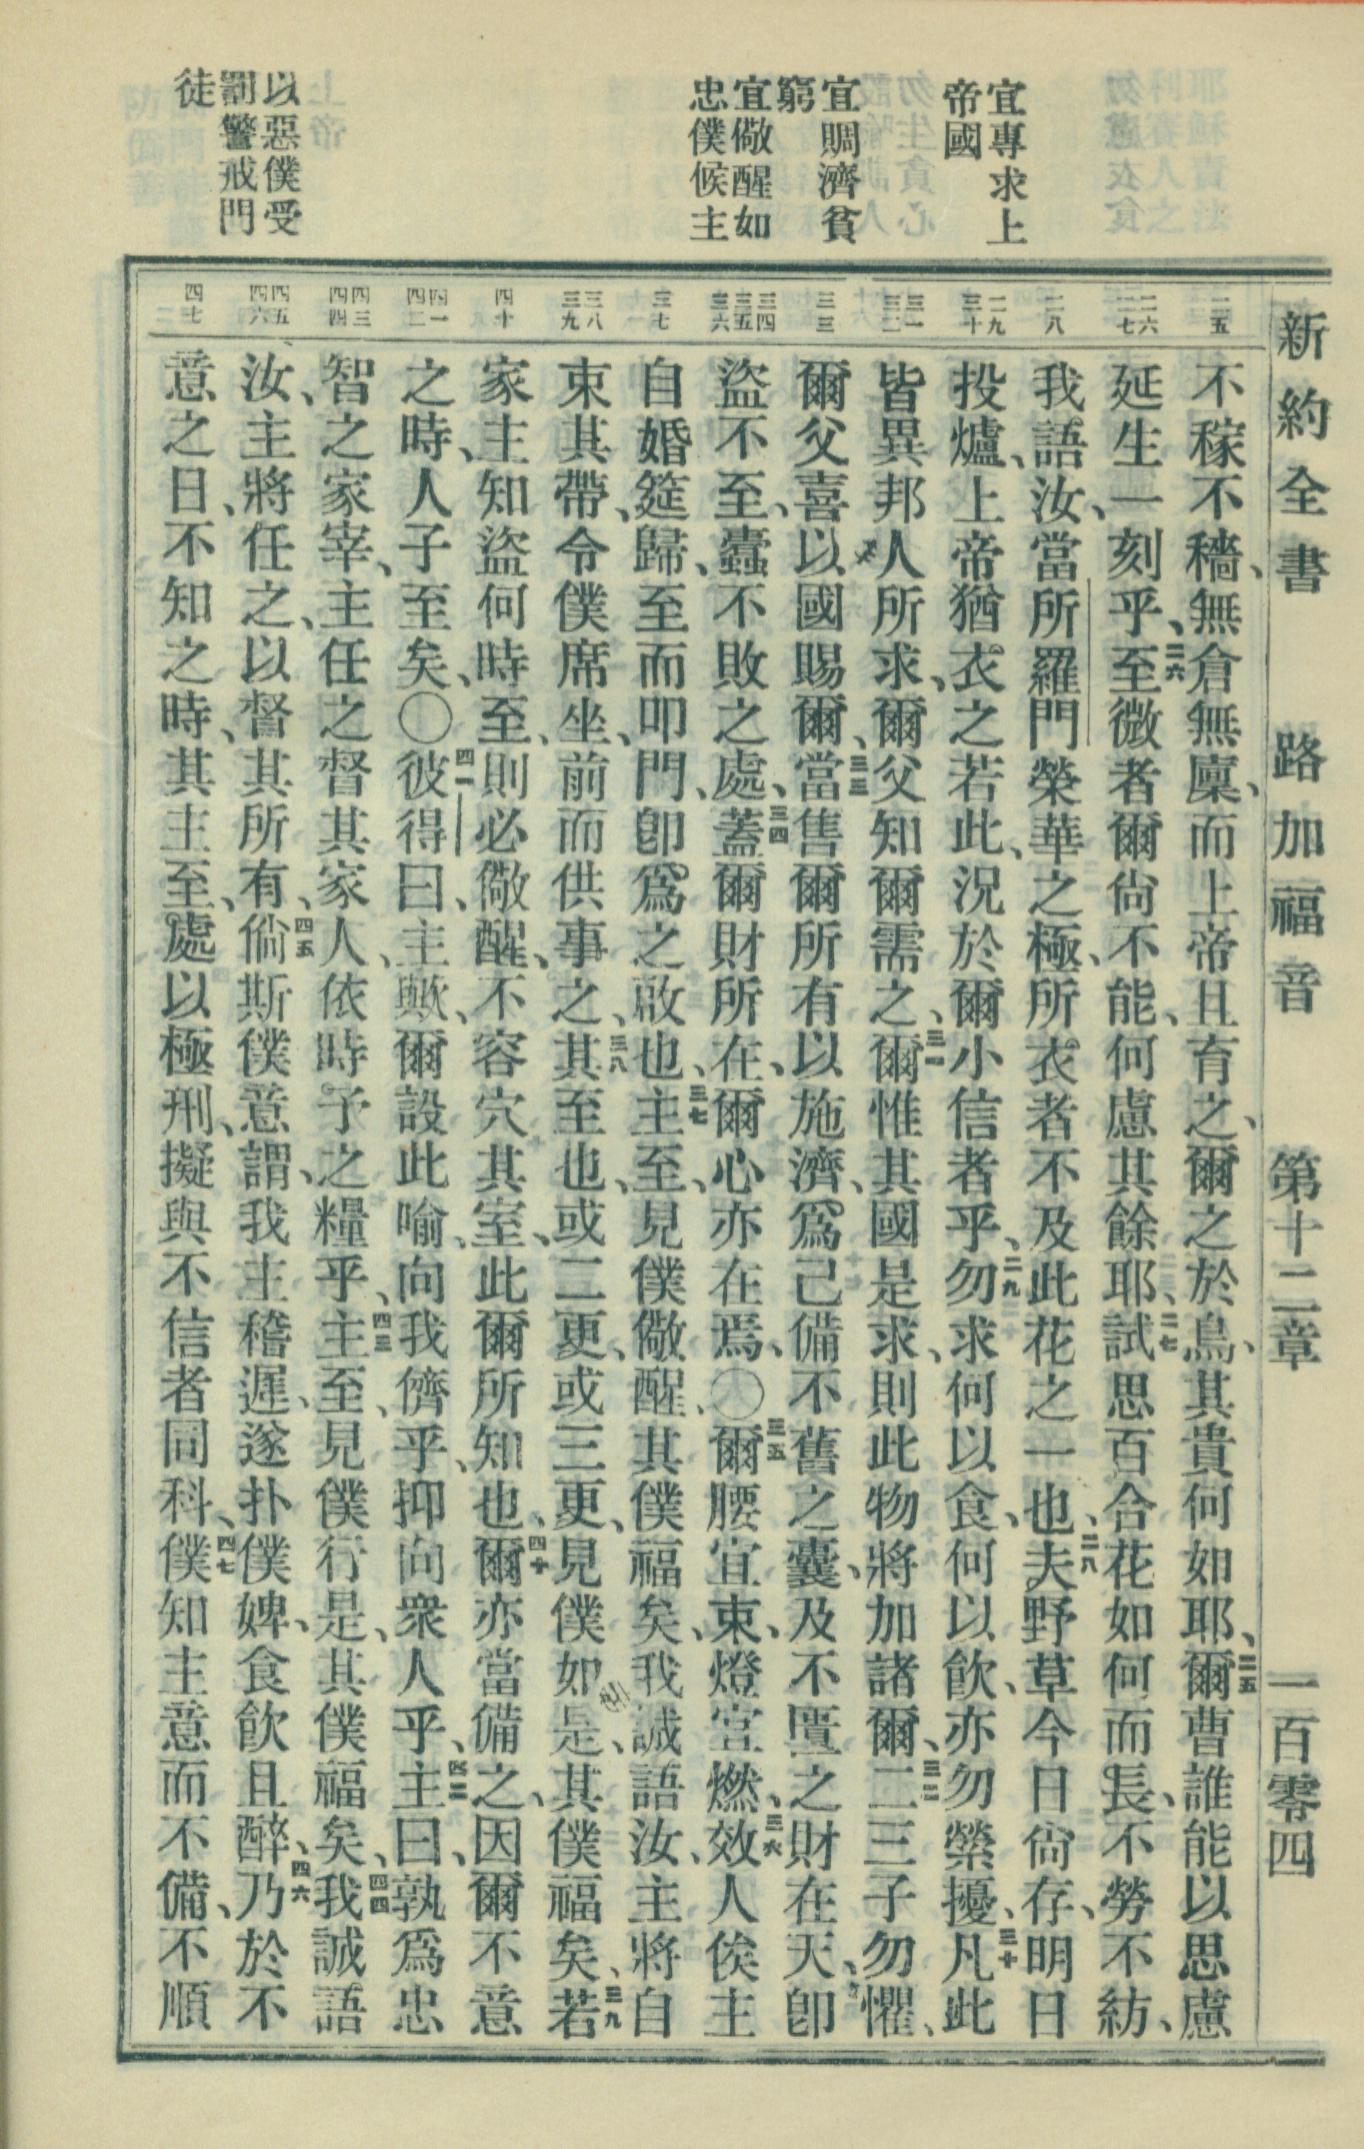 新約全書 路加福音 第十二章 一百零四
宜專求上
帝國
宜賙濟貧
窮
宜儆醒如
忠僕候主
以惡僕受
罰警戒門
徒
二五
二六 二七
二八
二九 三十
三一 三二
三三
三四 三五 三六
三七
三八 三九
四十
四一 四二
四三 四四
四五 四六
四七
不稼不穡、無倉無廩、而上帝且育之、爾之於鳥、其貴何如耶、二五爾曹誰能以思慮
延生一刻乎、二六至微者爾尙不能、何慮其餘耶、二七試思百合花如何而長、不勞不紡、
我語汝、當所羅門榮華之極、所衣者不及此花之一也、二八夫野草今日尙存、明日
投爐、上帝猶衣之若此、況於爾小信者乎、二九勿求何以食、何以飮、亦勿縈擾、三十凡此
皆異邦人所求、爾父知爾需之、三一爾惟其國是求、則此物將加諸爾、三二二三子勿懼、
爾父喜以國賜爾、三三當售爾所有以施濟、爲己備不舊之囊、及不匱之財在天、卽
盜不至、蠹不敗之處、三四蓋爾財所在、爾心亦在焉、〇三五爾腰宜束、燈宜燃、三六效人俟主
自婚筵歸、至而叩門、卽爲之啟也、三七主至、見僕儆醒、其僕福矣、我誠語汝、主將自
束其帶、令僕席坐、前而供事之、三八其至也、或二更、或三更、見僕如是、其僕福矣、三九若
家主知盜何時至、則必儆醒、不容穴其室、此爾所知也、四十爾亦當備之、因爾不意
之時、人子至矣、〇四一彼得曰、主歟、爾設此喻、向我儕乎、抑向衆人乎、四二主曰、孰爲忠
智之家宰、主任之督其家人、依時予之糧乎、四三主至、見僕行是、其僕福矣、四四我誠語
汝、主將任之、以督其所有、四五倘斯僕意謂、我主稽遲、遂扑僕婢、食飮且醉、四六乃於不
意之日、不知之時、其主至、處以極刑、擬與不信者同科、四七僕知主意而不備、不順